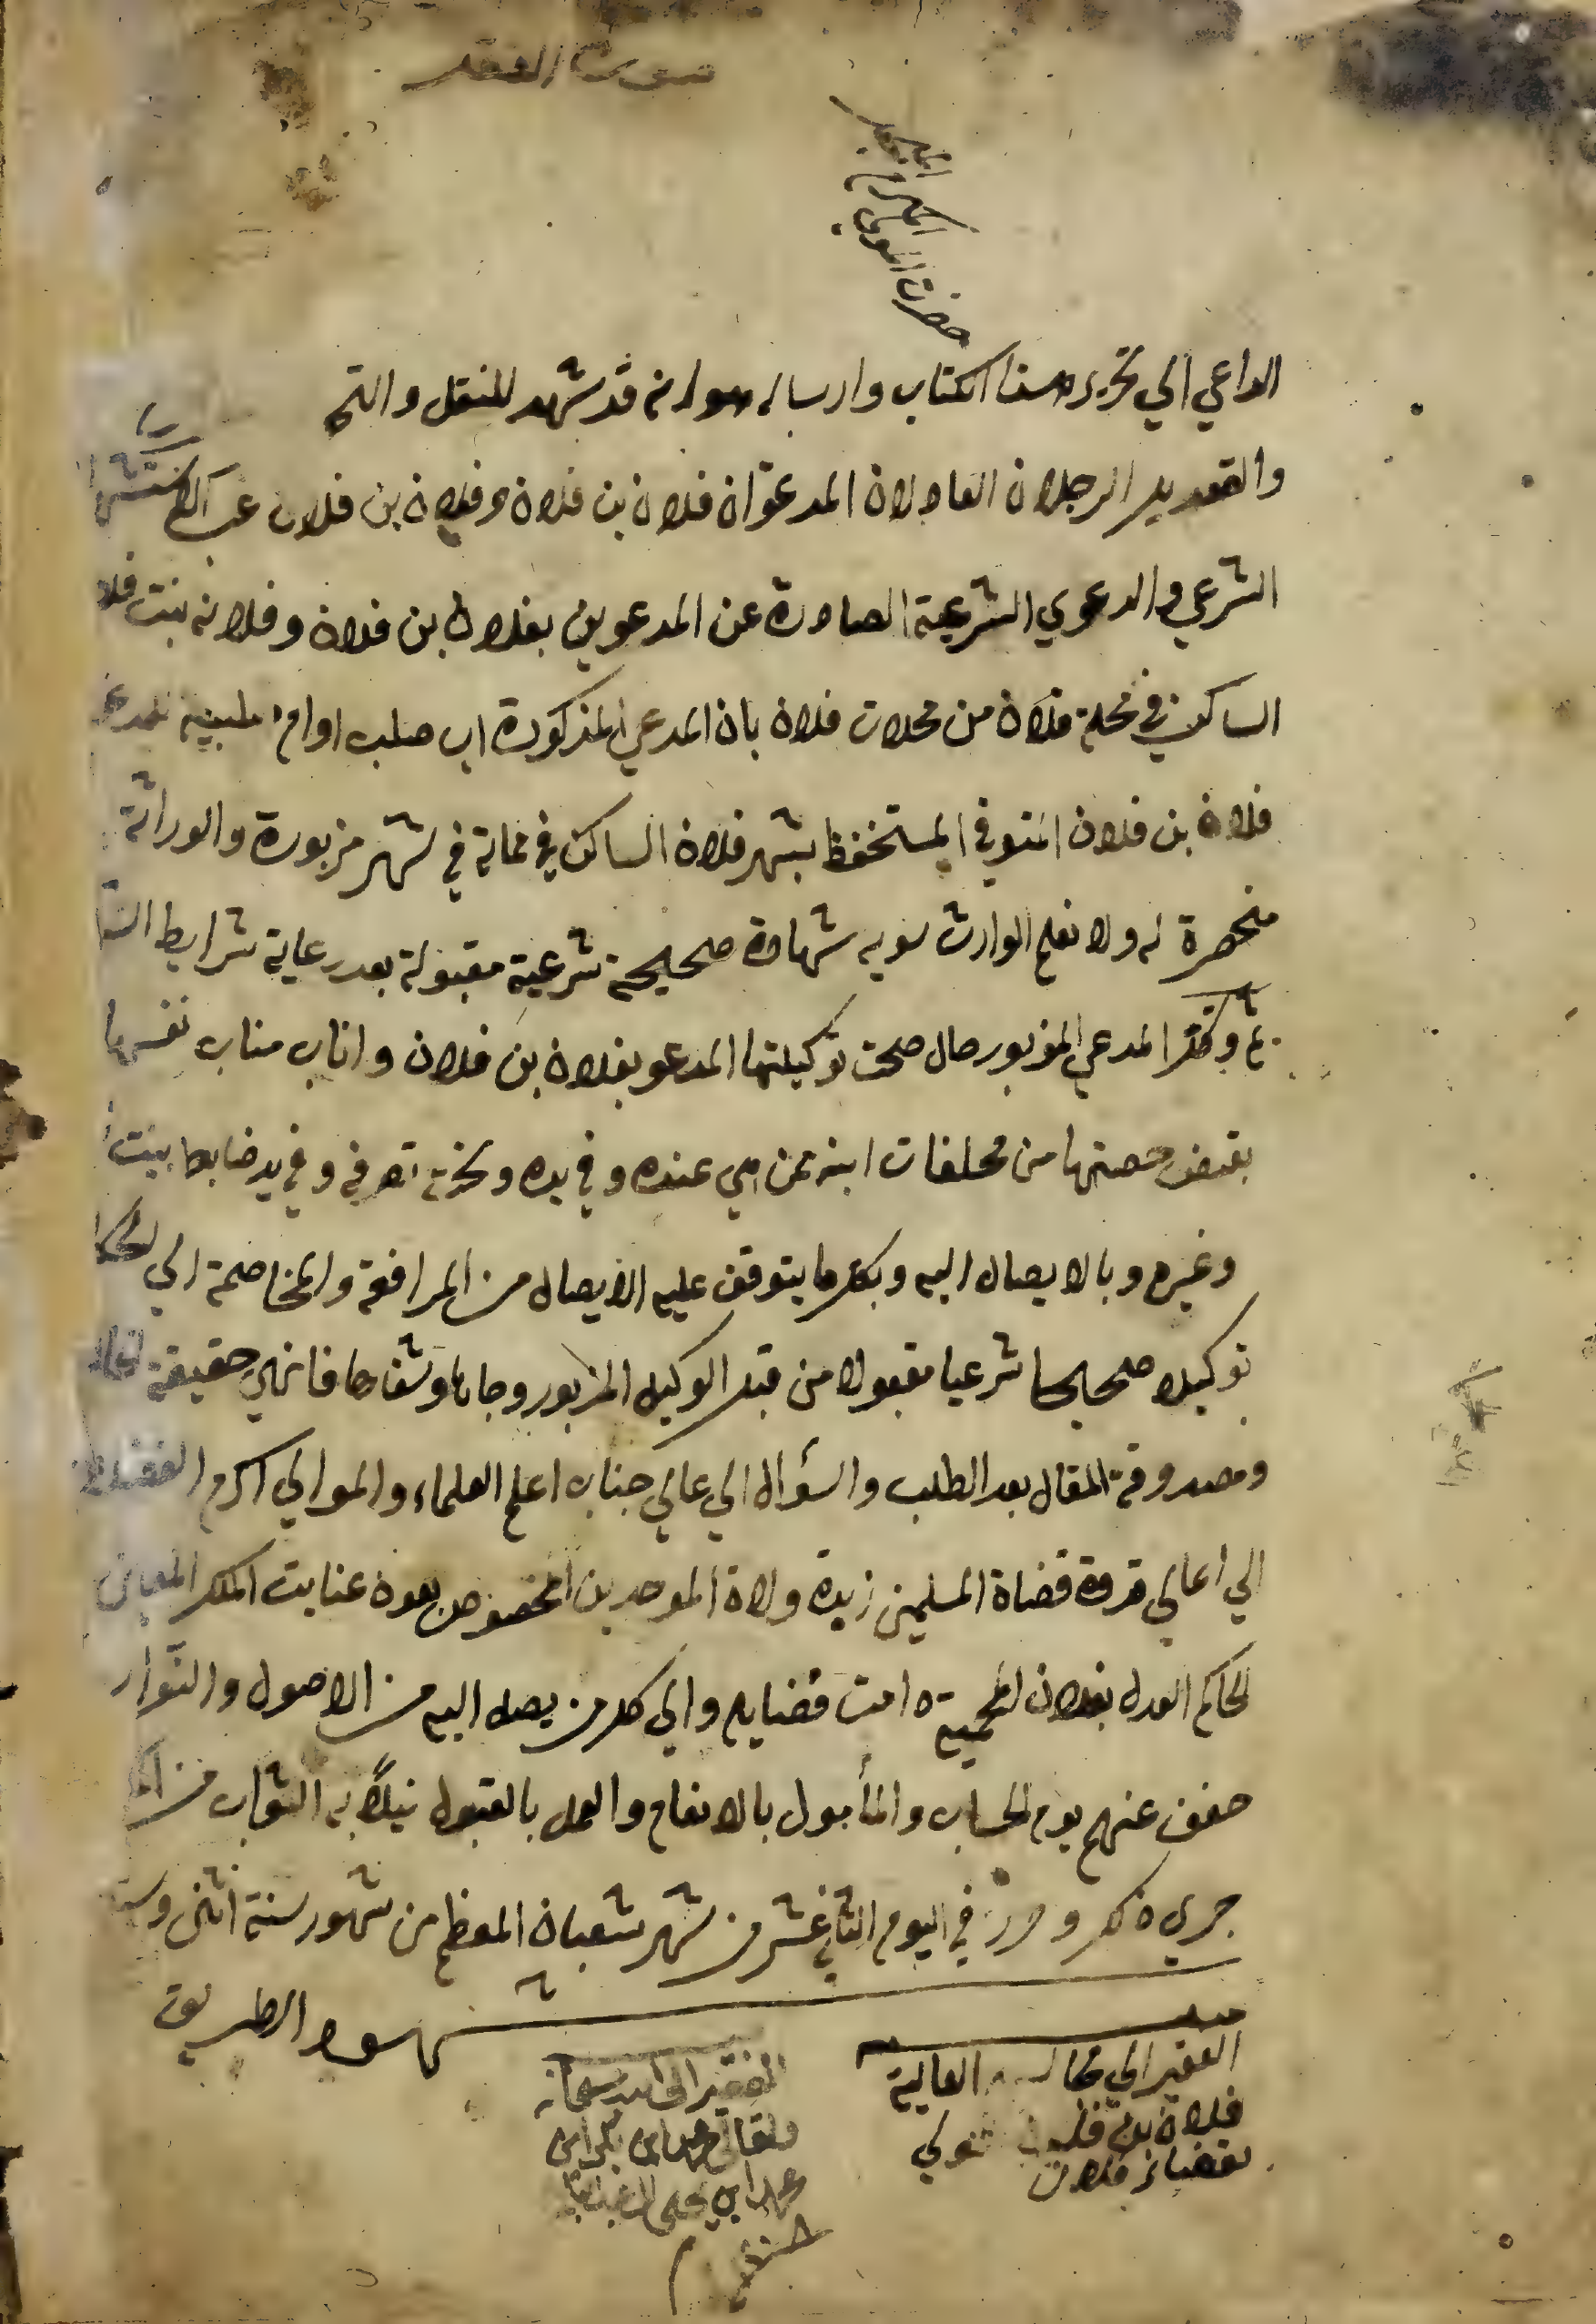 صورة النقل
حضرت المولى المكرم
الداعي الي تحرير هذا الكتاب وارساله هوانه قد شهد للنقل والتح
والتعديل الرجلان العادلان المدعوان فلان بن فلان وفلان بن فلان غب
الشرعي والدعوي الشرعية الصادرة عن المدعوين بفلان بن فلان وفلانه بنت فلا
الساكن في محلة فلان من محلات فلان بان المدعي المذكورة اب صلب اوام
فلان بن فلان المتوفي المستحفظ بشهر فلان الساكن في في شهر مزبورة والوراثة
منحصرة له ولا نعلم الوارث سويه شهادة صحيحة شرعية مقبولة بعد رعاية شرايط
ثم وكل المدعي المزبور حال صحت توكيلتها المدعو بفلان بن فلان واناب مناب نفسها
بقبض حصتها من مخلفات ابنه ممن هي عنده وفي يده وتحت تصرفه وفي يد ضابط بيت
وغيره وبالايصال اليه وبكل ما يتوقف عليه الايصال من المرافعة والمخاصمة الي
توكيلا صحيحا شرعيا مقبولا من قبل الوكيل المزبور وجاها وشفاها فانهي حقيقة
ومصدوقة المقال بعد الطلب والسؤال الي عالي جناب اعلم العلماء والموالي اكرم
الي اعالي قدوة قضاة المسلمين زبدة ولاة الموحدين المخصوص بعون عنايت الملك
الحاكم العدل بفلان المحمية دامت فضايله والي كل من يصل اليه من الاصول والنوار
خفف عنهم يوم الحساب والمأمول بالانعام والعمل بالقبول نيلا به الثواب من
جري ذلك وحرر في اليوم الثاني عشر من شهر شعبان المعظم من شهور سنة اثنى
شهود الطريق
الفقير الي العالية
فلان بن فلان المولي
بقضاء فلان
الفقير الى الله سبحانه
وتعالى محمد ابن بكر ابن
محمد ابن